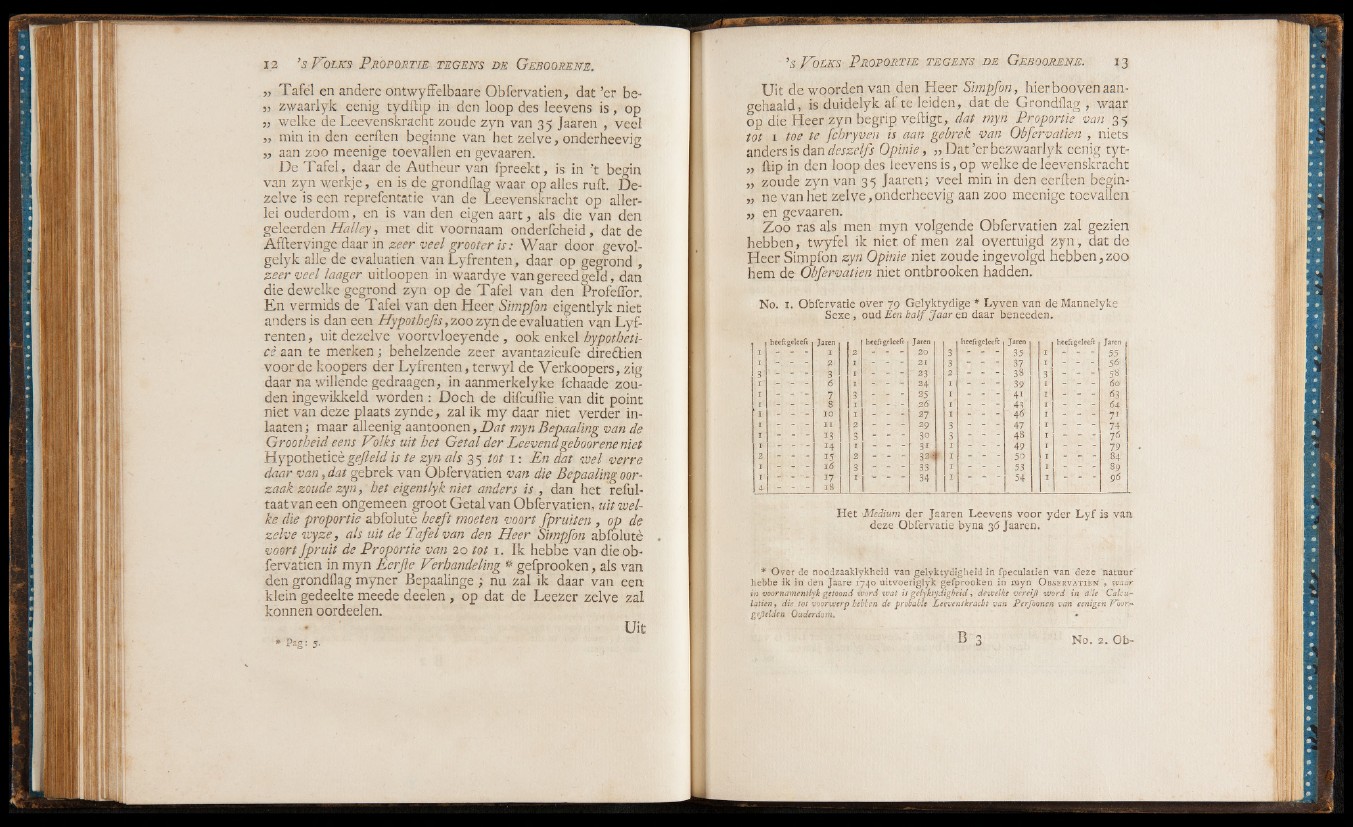 12 's VOLKS PROPORTIE TEGENS DE GEBOORENE.
„ Tafel en andere ontwyffelbaare Obſervatien, dat 'er be-
„ zwaarlyk eenig tydſtip in den loop des leevens is, op
„ welke de Leevenskracht zoude zyn van 35 Jaaren, veel
„ min in den eerſten beginne van het zelve, onderheevig
„ aan zoo meenige toevallen en gevaaren.
De Tafel, daar de Autheur van ſpreekt, is in 't begin
van zyn werkje, en is de grondſlag waar op alles ruſt. De-
zelve is een repreſentatie van de Leevenskracht op aller-
lei ouderdom, en is van den eigen aart, als die van den
geleerden Halley, met dit voornaam onderſcheid, dat de
Afſtervinge daar in zeer veel grooter is: Waar door gevol-
gelyk alle de evaluatien van Lyfrenten, daar op gegrond,
zeer veel laager uitloopen in waardye van gereed geld, dan
die dewelke gegrond zyn op de Tafel van den Profeſſor.
En vermids de Tafel van den Heer Simpſon eigentlyk niet
anders is dan een Hypotheſis, zoo zyn de evaluatien van Lyf-
renten, uit dezelve voortvloeyende, ook enkel hypotheti-
cè aan te merken; behelzende zeer avantazieuſe directien
voor de koopers der Lyfrenten, terwyl de Verkoopers, zig
daar na willende gedraagen, in aanmerkelyke ſchaade zou-
den ingewikkeld worden: Doch de diſcuſſie van dit point
niet van deze plaats zynde, zal ik my daar niet verder in-
laaten; maar alleenig aantoonen, Dat myn Bepaaling van de
Grootheid eens Volks uit het Getal der Leevend geboorene niet
Hypotheticè geſteld is te zyn als 35 tot 1: En dat wel verre
daar van, dat gebrek van Obſervatien van die Bepaaling oor-
zaak zoude zyn, het eigentlyk niet anders is, dan het reſul-
taat van een ongemeen groot Getal van Obſervatien, uit wel-
ke die proportie abſolutè heeft moeten voort ſpruiten, op de
zelve wyze, als uit de Tafel van den Heer Simpſon abſolutè
voort ſpruit de Proportie van 20 tot 1. Ik hebbe van die ob-
ſervatien in myn Eerſte Verhandeling * geſprooken, als van
den grondſlag myner Bepaalinge; nu zal ik daar van een
klein gedeelte meede deelen, op dat de Leezer zelve zal
konnen oordeelen.
Uit
* Pag: 5.
's VOLKS PROPORTIE TEGENS DE GEBOORENE. 13
Uit de woorden van den Heer Simpſon, hier booven aan-
gehaald, is duidelyk af te leiden, dat de Grondſlag, waar
op die Heer zyn begrip veſtigt, dat myn Proportie van 35
tot 1 toe te ſchryven is aan gebrek van Obſervatien, niets
anders is dan deszelfs Opinie, „ Dat 'er bezwaarlyk eenig tyt-
„ ſtip in den loop des leevens is, op welke de leevenskracht
„ zoude zyn van 35 Jaaren; veel min in den eerſten begin-
„ ne van het zelve, onderheevig aan zoo meenige toevallen
„ en gevaaren.
Zoo ras als men myn volgende Obſervatien zal gezien
hebben, twyfel ik niet of men zal overtuigd zyn, dat de
Heer Simpſon zyn Opinie niet zoude ingevolgd hebben, zoo
hem de Obſervatien niet ontbrooken hadden.
No. 1. Obſervatie over 79 Gelyktydige * Lyven van de Mannelyke
Sexe, oud Een half Jaar en daar beneeden.
heeft geleeft Jaren heeft geleeft Jaren heeft geleeft Jaren heeft geleeft Jaren
1 - - - 1 2 - - - 20 3 - - - 35 1 - - - 55
1 - - - 2 1 - - - 21 3 - - - 37 1 - - - 56
3 - - - 3 1 - - - 23 2 - - - 38 3 - - - 58
1 - - - 6 1 - - - 24 1 - - - 39 1 - - - 60
1 - - - 7 3 - - - 25 1 - - - 41 1 - - - 63
1 - - - 8 1 - - - 26 1 - - - 43 1 - - - 64
1 - - - 10 1 - - - 27 1 - - - 46 1 - - - 71
1 - - - 11 2 - - - 29 3 - - - 47 1 - - - 74
1 - - - 13 3 - - - 30 3 - - - 48 1 - - - 76
1 - - - 14 1 - - - 31 1 - - - 49 1 - - - 79
2 - - - 15 2 - - - 32 1 - - - 50 1 - - - 84
1 - - - 16 3 - - - 33 1 - - - 53 1 - - - 89
1 - - - 17 1 - - - 34 1 - - - 54 1 - - - 96
4 - - - 18
Het Medium der Jaaren Leevens voor yder Lyf is van
deze Obſervatie byna 36 Jaaren.
* Over de noodzaaklykheid van gelyktydigheid in ſpeculatien van deze natuur
hebbe ik in den Jaare 1740 uitvoeriglyk geſprooken in myn OBSERVATIEN, waar
in voornamentlyk getoond word wat is gelyktydigheid, dewelke vereiſt word in alle Calcu-
latien, die tot voorwerp hebben de probable Leevenskracht van Perſoonen van eenigen Voor-
geſtelden Ouderdom.
B 3 No. 2. Ob-